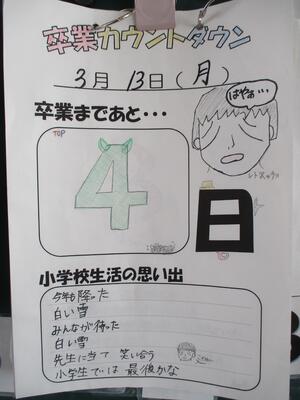 卒業カウントダウン
3月 13日(月)
はやぁ…
卒業まであと・・・
TOP
4
日
小学校生活の思い出
今年も降った
白い雪
みんなが待った
白い雪
先生に当て 笑い合う
小学生では 最後かな